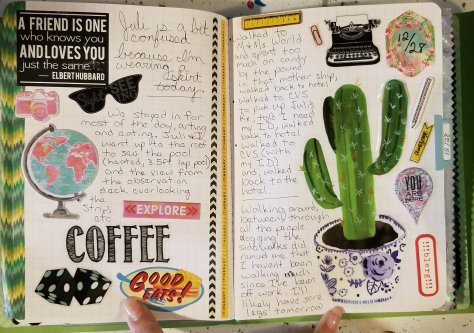 A FRIEND IS ONE
who knows you
AND LOVES YOU
just the same
— ELBERT HUBBARD
Juli is a bit
confused
because I'm
wearing a
skirt
today.
We stayed in for
most of the day,
and eating. Just I
went up to the roof
to see the pool
(heated, 3.5ft lap pool)
and the view from
the observation
deck overlooking
the Strip,
etc
EXPLORE
COFFEE
GOOD
EATS!
walked to
M&Ms World
and spent too
much on candy
by the pound
at the mother ship,
walked back to hotel
walked to CVS
to pick up Juli's
Rx, told I need
my ID, walked
back to hotel
walked to
CVS (with
my ID)
and walked
back to the
hotel.
Walking around
between through
all the people
clogging the
sidewalks did
remind me that
I haven't been
walking much
since I've been
off work. I'll
likely have sore
legs tomorrow
12/28
YOU
ARE